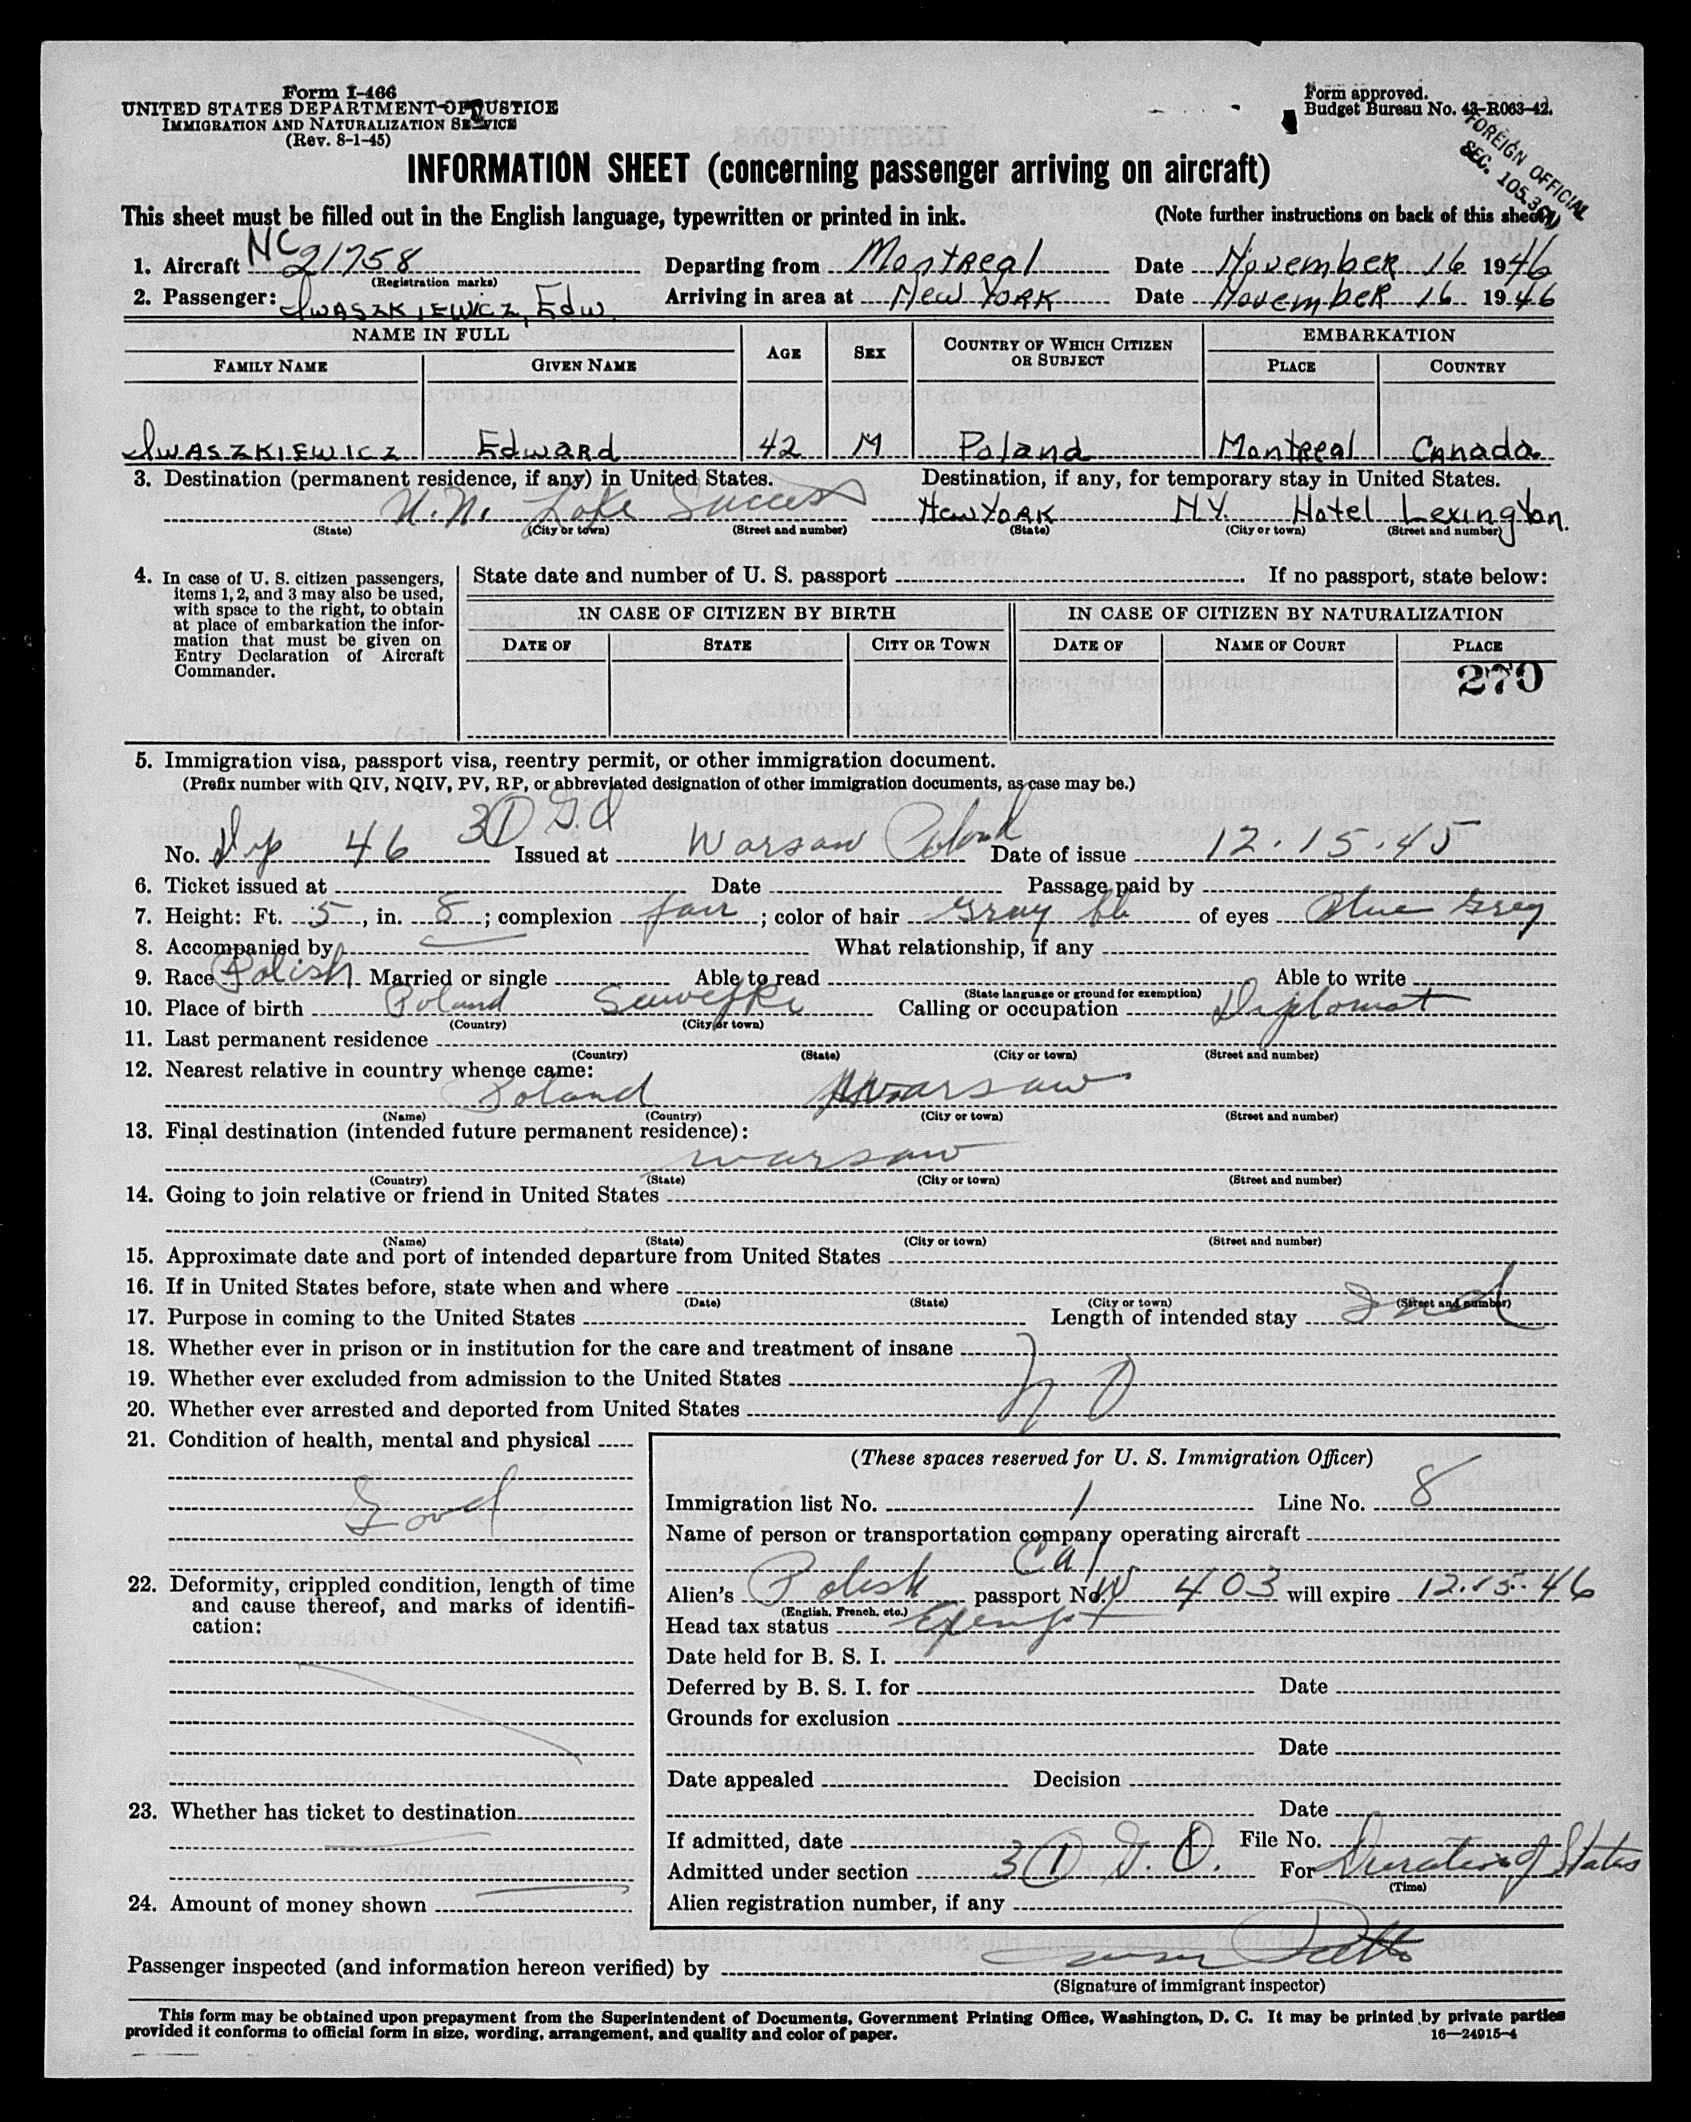 Form I-466
UNITED STATES DEPARTMENT OF JUSTICE
IMMIGRATION AND NATURALIZATION SERVICE
(Rev. 8-1-45)
Form approved.
Budget Bureau No. 43-R063-42.
FOREIGN OFFICIAL
SEC. 105.3(
INFORMATION SHEET (concerning passenger arriving on aircraft)
This sheet must be filled out in the English language, typewritten or printed in ink. (Note further instructions on back of this sheet.)
1. Aircraft NC 21758 Departing from Montreal Date November 16 1946
(Registration marks)
2. Passenger: Iwaszkiewicz, Edw Arriving in area at New York Date November 16 1946
NAME IN FULL AGE SEX COUNTRY OF WHICH CITIZEN OR SUBJECT EMBARKATION
FAMILY NAME GIVEN NAME PLACE COUNTRY
Iwaszkiewicz Edward 42 M Poland Montreal Canada
3. Destination (permanent residence, if any) in United States. Destination, if any, for temporary stay in United States.
U.N. Lake Success New York N.Y. Hotel Lexington.
(State) (City or town) (Street and number) (State) (City or town) (Street and number)
4. In case of U. S. citizen passengers, items 1, 2, and 3 may also be used, with space to the right, to obtain at place of embarkation the information that must be given on Entry Declaration of Aircraft Commander.
State date and number of U. S. passport If no passport, state below:
IN CASE OF CITIZEN BY BIRTH IN CASE OF CITIZEN BY NATURALIZATION
DATE OF STATE CITY OR TOWN DATE OF NAME OF COURT PLACE
270
5. Immigration visa, passport visa, reentry permit, or other immigration document.
(Prefix number with QIV, NQIV, PV, RP, or abbreviated designation of other immigration documents, as case may be.)
No. Dip 46 3(1) G.O Issued at Warsaw Poland Date of issue 12.15.45
6. Ticket issued at Date Passage paid by
7. Height: Ft. 5, in. 8; complexion fair; color of hair Gray bl of eyes Blue Grey
8. Accompanied by What relationship, if any
9. Race Polish Married or single Able to read Able to write
(State language or ground for exemption)
10. Place of birth Poland Calling or occupation Diplomat
(Country) (City or town)
11. Last permanent residence
(Country) (State) (City or town) (Street and number)
12. Nearest relative in country whence came:
Poland Warsaw
(Name) (Country) (City or town) (Street and number)
13. Final destination (intended future permanent residence):
Warsaw
(Country) (State) (City or town) (Street and number)
14. Going to join relative or friend in United States
(Name) (State) (City or town) (Street and number)
15. Approximate date and port of intended departure from United States
16. If in United States before, state when and where
(Date) (State) (City or town) (Street and number)
17. Purpose in coming to the United States Length of intended stay Ind
18. Whether ever in prison or in institution for the care and treatment of insane
19. Whether ever excluded from admission to the United States NO
20. Whether ever arrested and deported from United States
21. Condition of health, mental and physical
Good
22. Deformity, crippled condition, length of time and cause thereof, and marks of identification:
23. Whether has ticket to destination
24. Amount of money shown
(These spaces reserved for U. S. Immigration Officer)
Immigration list No. 1 Line No. 8
Name of person or transportation company operating aircraft
Cal
Alien's Polish passport No. W 403 will expire 12.15.46
(English, French, etc.)
Head tax status Exempt
Date held for B. S. I.
Deferred by B. S. I. for Date
Grounds for exclusion
Date
Date appealed Decision
Date
If admitted, date File No.
Admitted under section 3(1) G.O. For Duration of Status
(Time)
Alien registration number, if any
Passenger inspected (and information hereon verified) by
(Signature of immigrant inspector)
This form may be obtained upon prepayment from the Superintendent of Documents, Government Printing Office, Washington, D. C. It may be printed by private parties
provided it conforms to official form in size, wording, arrangement, and quality and color of paper.
16—24915-4